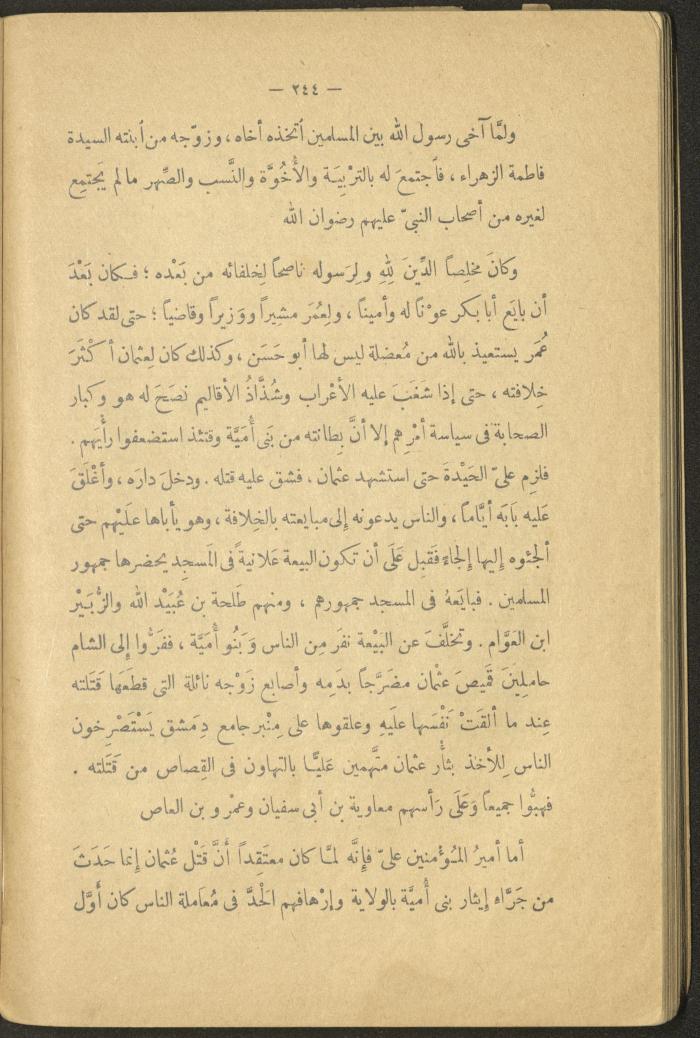 — ٢٤٤ —
ولمَّا آخى رسول الله بين المسلمين ٱتخذه أخاه ، وزوّجه من ٱبنته السيدة
فاطمة الزهراء ، فٱجتمعَ له بالترْبِيَة والأُخُوَّة والنَّسب والصِّهر ما لم يَجتمِع
لغيره من أصحاب النبىّ عليهم رضوان الله
وكانَ مخلِصاً الدِّينَ لِلهِ ولِرَسوله ناصحاً لِخلفائه من بَعْده ؛ فكان بَعْدَ
أن بايَع أبا بكر عوْناً له وأميناً ، ولِعُمَر مشيراً ووَزيراً وقاضياً ؛ حتى لقد كان
عُمَر يستعيذ بالله من مُعضلة ليس لها أبو حَسَن ، وكذلك كان لِعثمان أكْثَرَ
خِلافته ، حتى إذا شَغَبَ عليه الأعْراب وشُذَّاذُ الأقاليم نصَحَ له هو وكبار
الصحابة فى سياسة أمْرِهم إلا أنَّ بِطانته من بَنى أُمَيَّة وقتئذ استضعفوا رأيَهم .
فلزِم علىّ الحَيْدةَ حتى استشهد عثمان ، فشق عليه قتله . ودخلَ دارَه ، وأغْلَقَ
عَليه بَابَه أيَّاماً ، والناس يدعونه إلى مبايعته بالخِلافة ، وهو يأباها علَيْهم حتى
ألجئوه إليها إلجاءً فقبِل عَلَى أن تكون البيعة علانيةً فى المَسجِد يحضرها جمهور
المسلمين . فبايَعهُ فى المسجد جمهورهم ، ومنهم طَلحة بن عُبَيْد الله والزُّبَيْر
ابن العَوَّام . وتخلَّفَ عن البَيْعة نفَر مِن الناس وَبَنُو أُمَيَّة ، ففَرُّوا إلى الشام
حاملِينَ قَميصَ عثْمان مضَرَّجاً بدَمِه وأصابع زَوْجه نائلة التى قطعَها قَتَلته
عِند ما ألقَتْ نَفْسَها علَيهِ وعلقوها على مِنْبر جامع دِمَشق يَسْتَصْرِخون
الناس لِلأخذ بثأْر عثمان متَّهمين عَليًّا بالتهاون فى القِصاص من قَتَلته .
فهبُّوا جميعاً وَعَلَى رَأسهم معاوية بن أبى سفيان وعمْرو بن العاص
أما أميرُ المُؤْمنين علىّ فإنَّه لمَّا كان معتَقِداً أنَّ قَتْل عُثمان إنما حَدَثَ
من جَرَّاءِ إيثار بنى أُميَّة بالولاية وإرْهافهم الْحَدَّ فى مُعَاملة الناس كان أوَّل